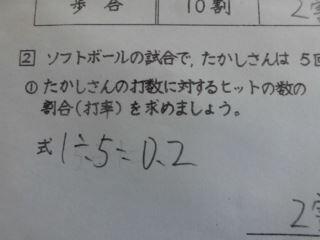 歩合 10割 2割
2 ソフトボールの試合で,たかしさんは 5回
① たかしさんの打数に対するヒットの数の
割合(打率)を求めましょう。
式 1÷5=0.2
2割